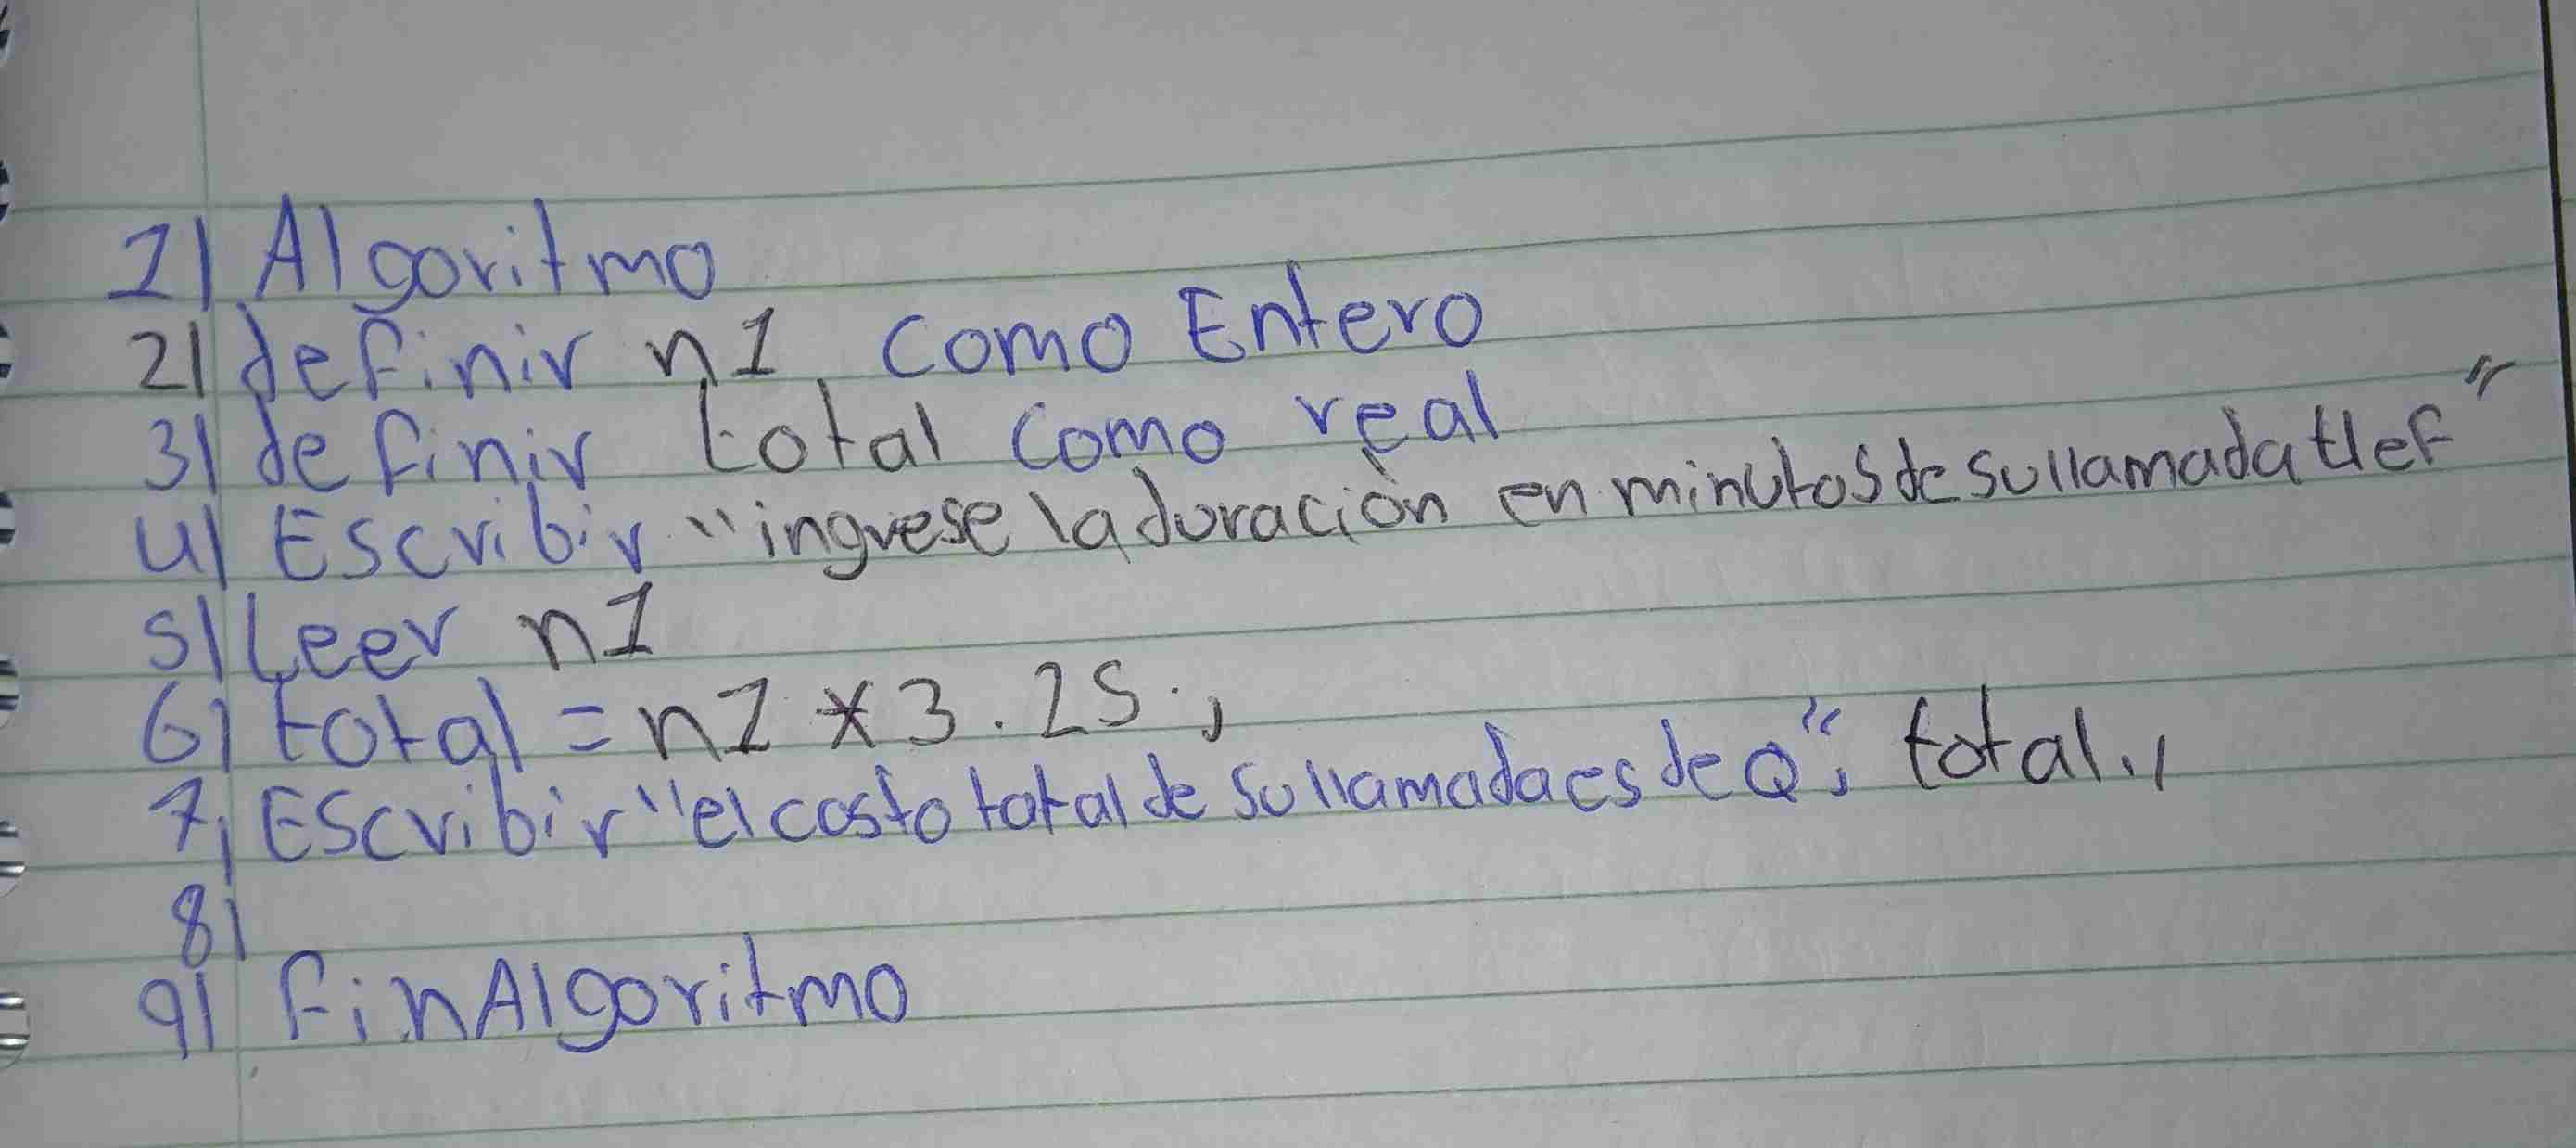 1) Algoritmo
2) definir n1 como Entero
3) definir total como real
4) Escribir "ingrese la duración en minutos de su llamada tlef"
5) Leer n1
6) total = n1 * 3.25 ;
7) Escribir "el costo total de su llamada es de Q", total ;
8)
9) FinAlgoritmo